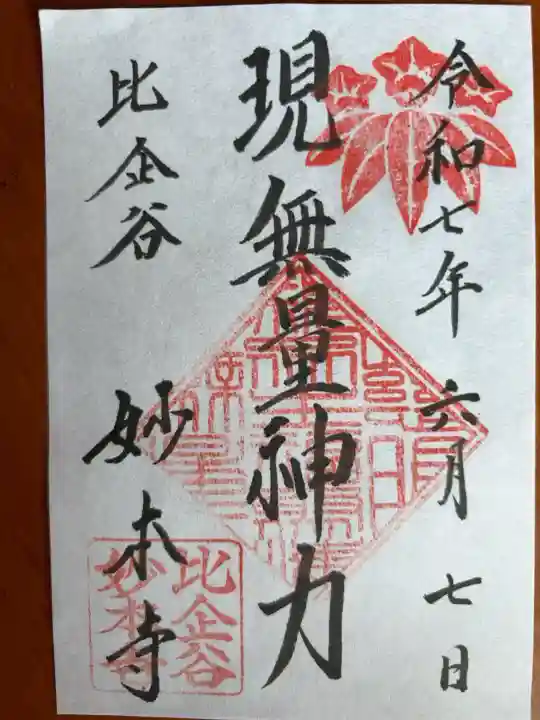 令和七年 六月 七日
現無量神力
比企谷 妙本寺
比企谷
妙本寺